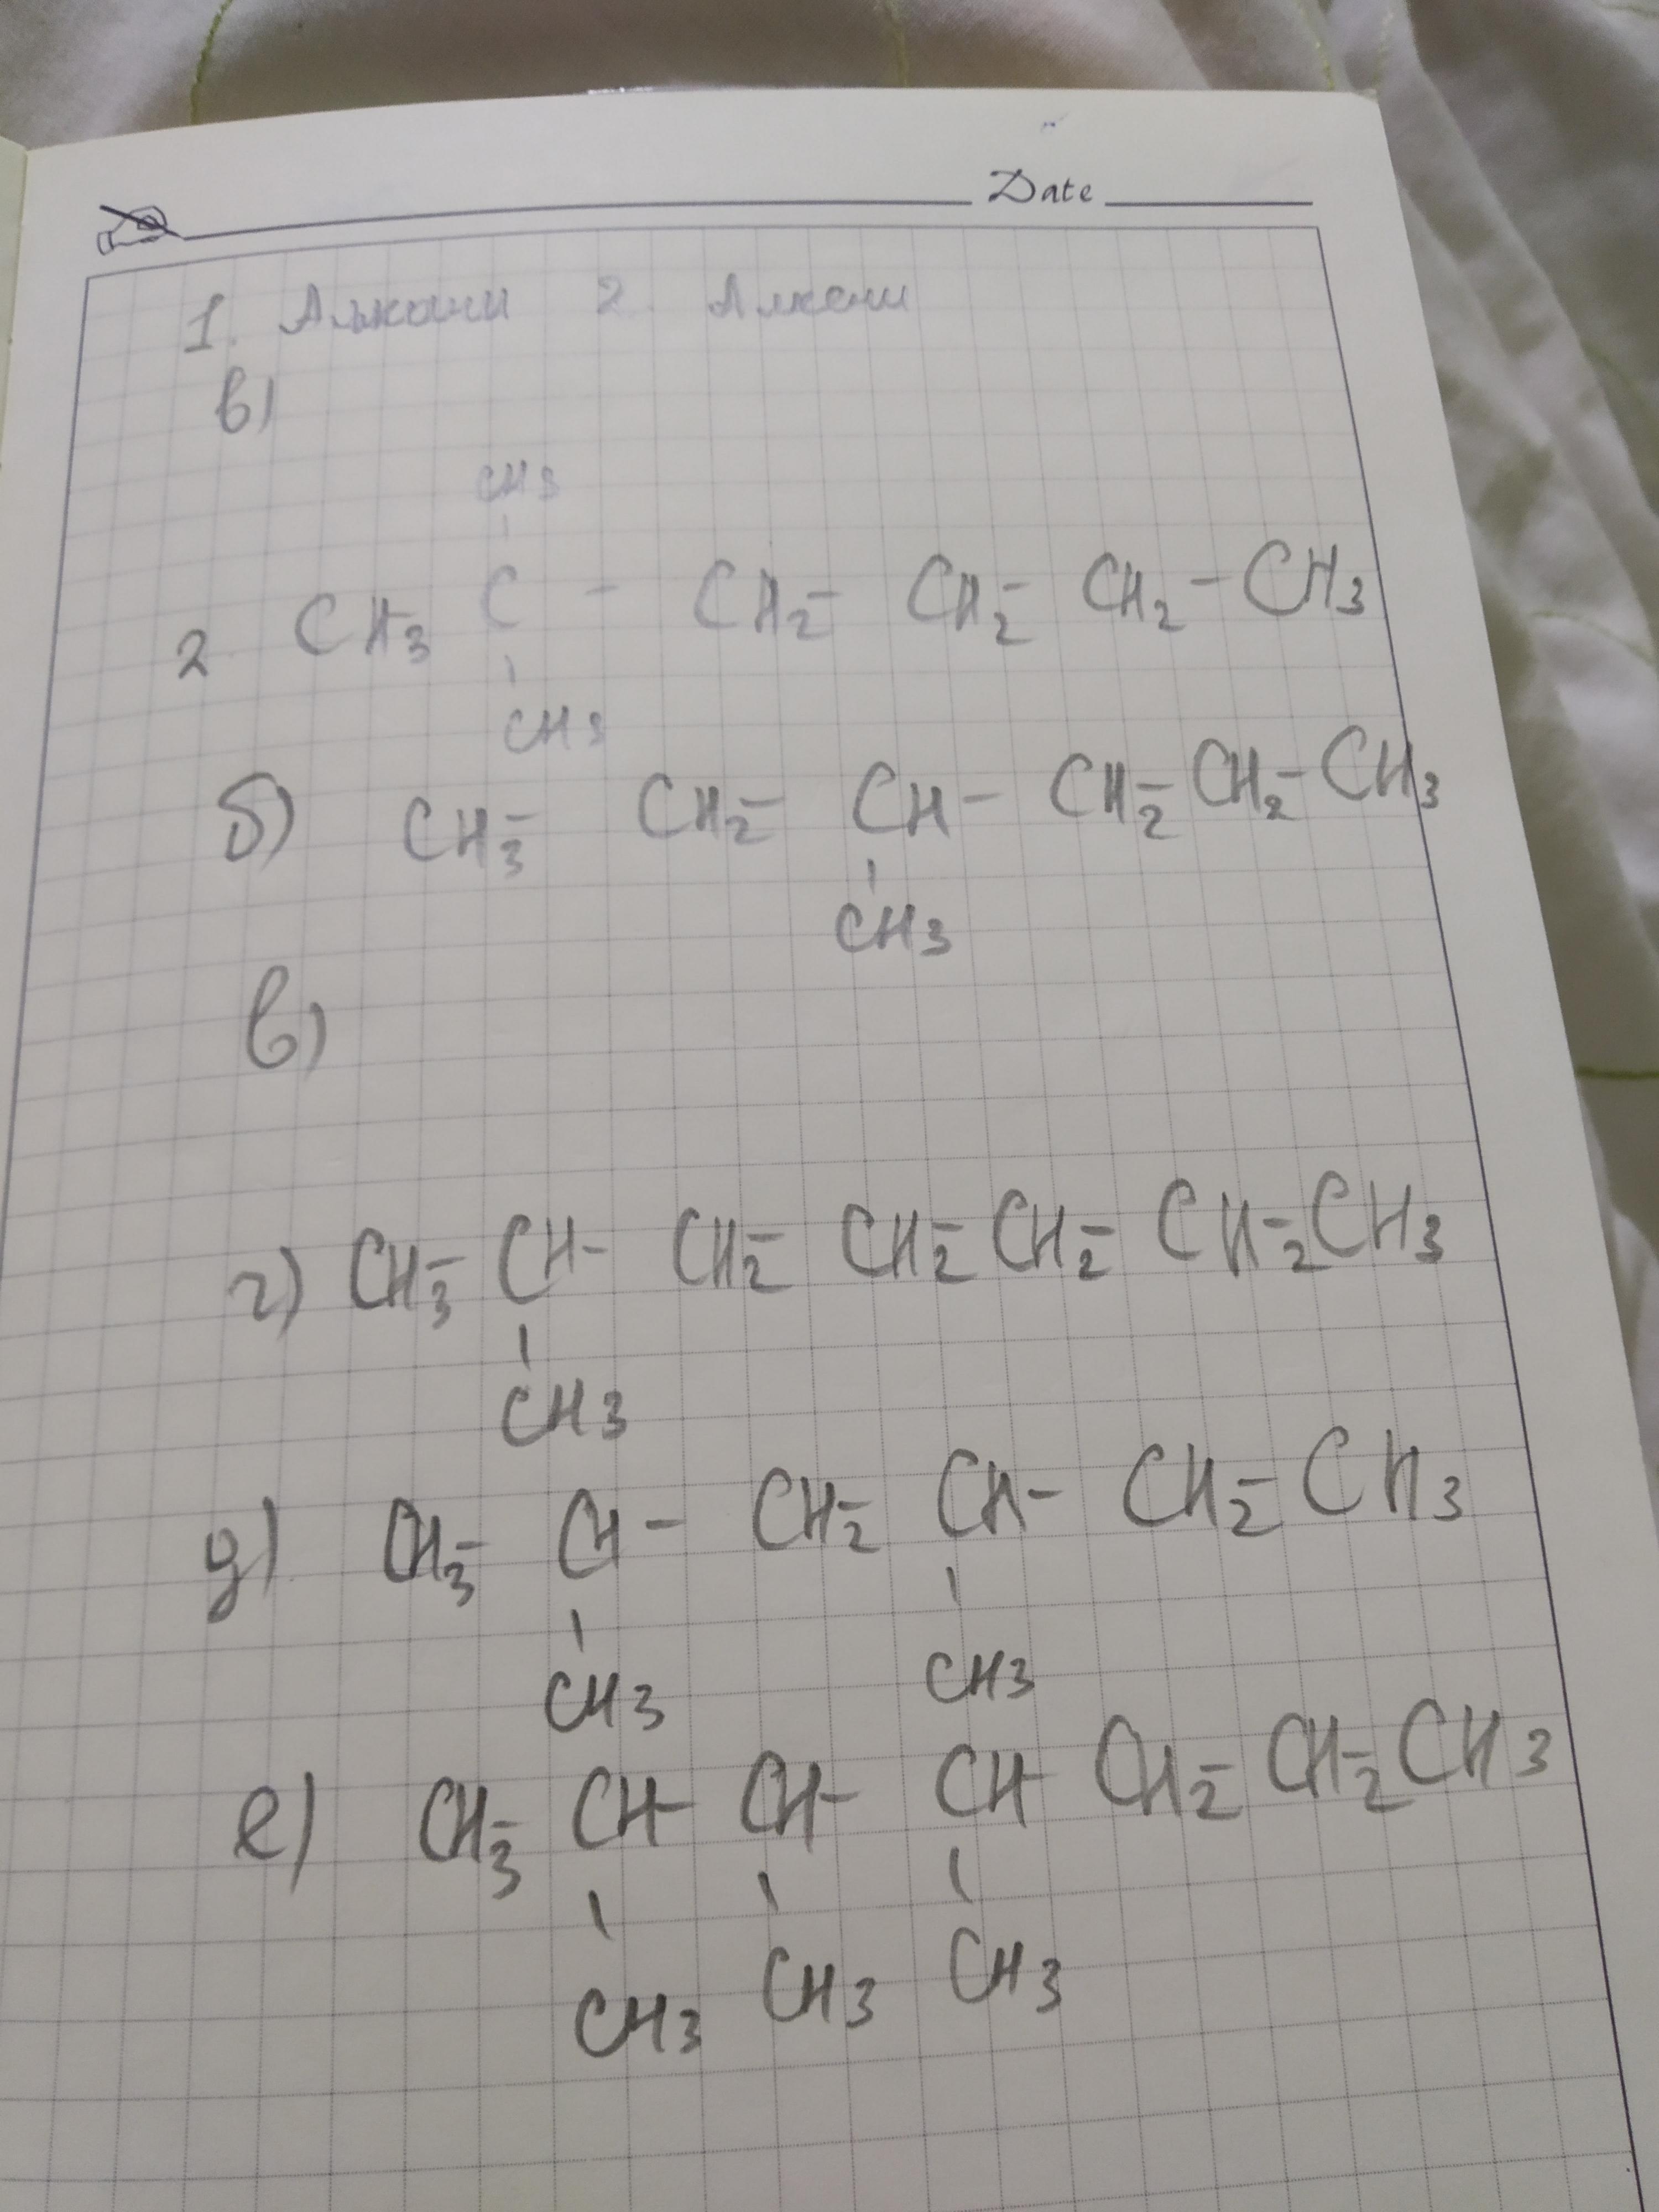 Date
1. Алкани 2. Алкени
в)
CH3
2. CH3 C - CH2- CH2- CH2 - CH3
CH3
б) CH3- CH2- CH - CH2- CH2- CH3
CH3
в)
г) CH3- CH- CH2- CH2- CH2- CH2- CH3
CH3
д) CH3- CH - CH2- CH- CH2- CH3
CH3 CH3
е) CH3- CH- CH- CH- CH2- CH2- CH3
CH3 CH3 CH3